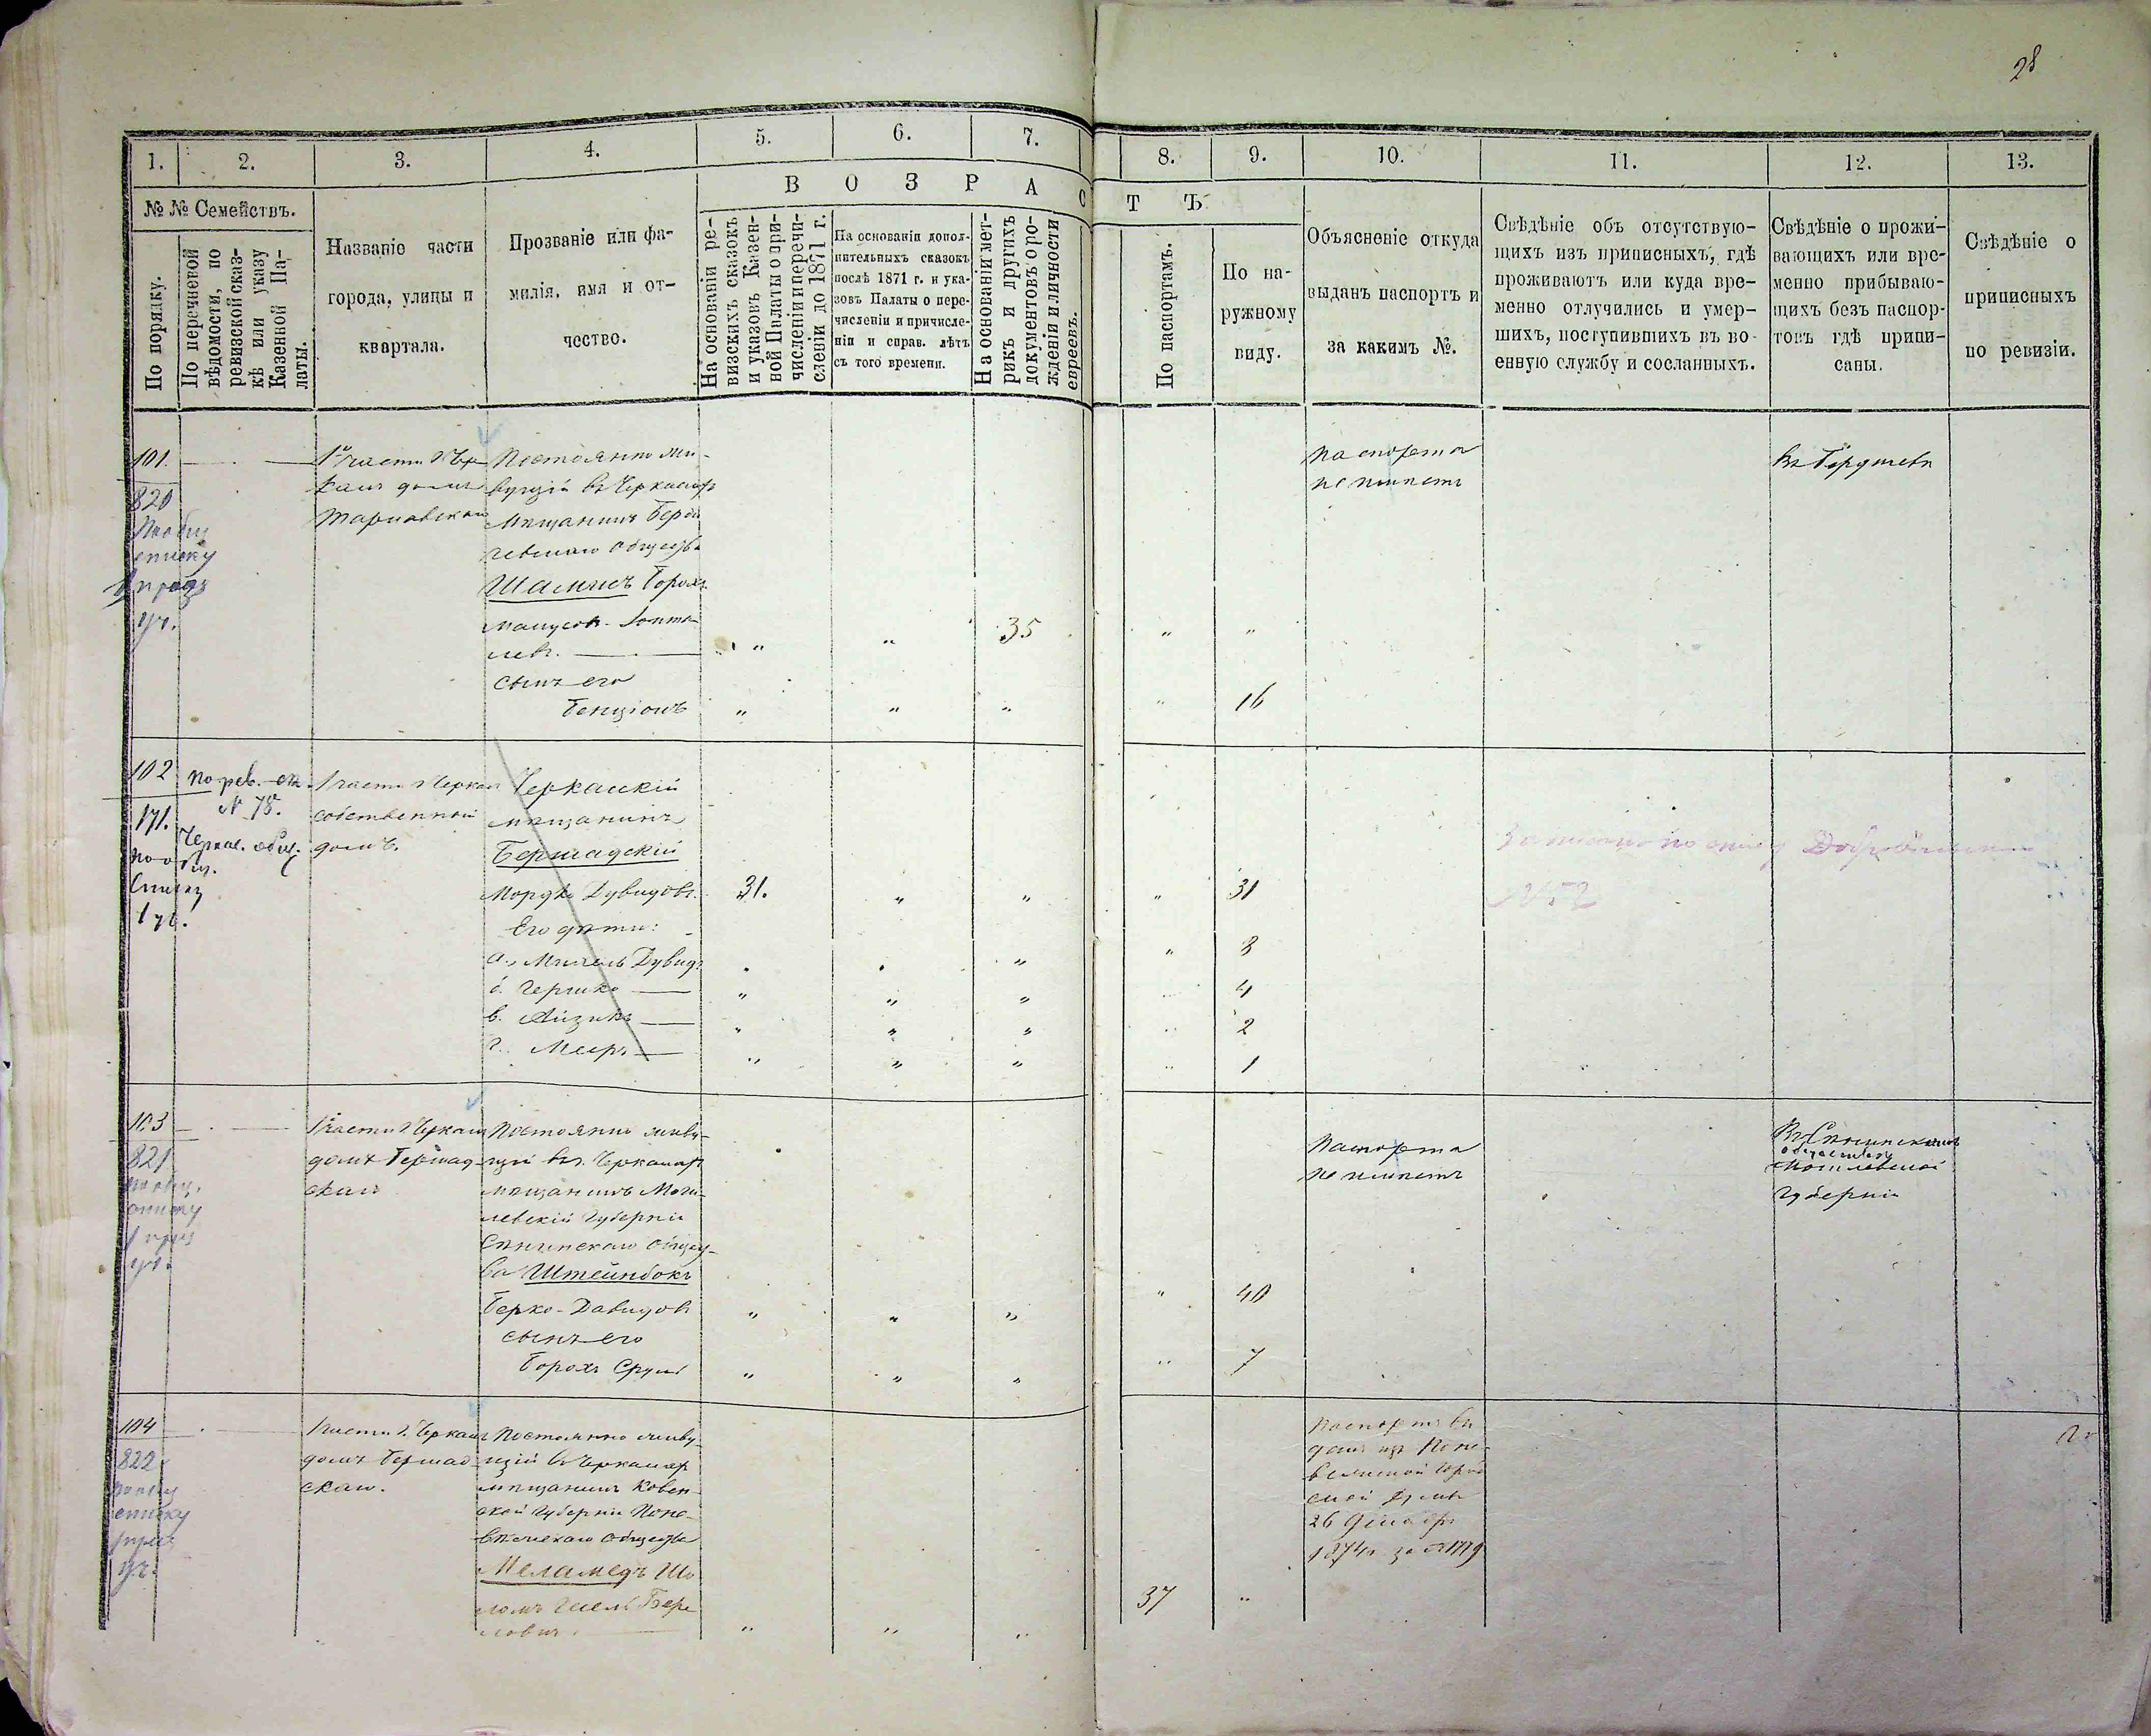 28
1. 2. 3. 4. 5. 6. 7. 8. 9. 10. 11. 12. 13.
В О З Р А С Т Ъ
№ № Семействъ.
По порядку.
По перечневой
вѣдомости, по
ревизской сказ-
кѣ или указу
Казенной Па-
латы.
Названіе части
города, улицы и
квартала.
Прозваніе или фа-
милія, имя и от-
чество.
На основаніи ре-
визскихъ сказокъ
и указовъ Казен-
ной Палаты о при-
численіи и перечи-
сленіи до 1871 г.
На основаніи допол-
нительныхъ сказокъ
послѣ 1871 г. и ука-
зовъ Палаты о пере-
численіи и причисле-
ніи и справ. лѣтъ
съ того времени.
На основаніи мет-
рикъ и другихъ
документовъ о ро-
жденіи и личности
евреевъ.
По паспортамъ.
По на-
ружному
виду.
Объясненіе откуда
выданъ паспортъ и
за какимъ №.
Свѣдѣніе объ отсутствую-
щихъ изъ приписныхъ, гдѣ
проживаютъ или куда вре-
менно отлучились и умер-
шихъ, поступившихъ въ во-
енную службу и сосланныхъ.
Свѣдѣніе о прожи-
вающихъ или вре-
менно прибываю-
щихъ безъ паспор-
товъ гдѣ припи-
саны.
Свѣдѣніе о
приписныхъ
по ревизіи.
101.
820
списку
уч.
части г. Чер
касъ домъ
Постоянно жи-
вущій въ Черкасахъ
мѣщанинъ Берди
чевскаго общества
Шамисъ Борохъ
35
сынъ его
Бенціонъ
16
паспорта
не имѣетъ
Въ Бердичевѣ
102
171.
по об
списку
1 уч.
по рев. ск.
№ 75.
Черкас. общ.
1 части г. Черкасъ
собственный
домъ.
Черкаскій
мѣщанинъ
Бершадскій
Мордко Дувидовъ.
31.
31
Его дѣти:
а. Дувидъ
8
б. Гершко
4
в. Айзикъ
2
г. Меиръ
1
Записано по списку
№ 52
103
821
списку
уч.
1 части г. Черкасъ
домъ Бершад-
скаго
Постоянно живу-
щій въ г. Черкасахъ
мѣщанинъ Моги-
левской Губерніи
Сѣннинскаго общест-
ва Штейнбокъ
Берко-Давидовъ
40
сынъ его
Борохъ Сруль
7
Паспорта
не имѣетъ
Въ Сѣннинскомъ
обществѣ
Могилевской
Губерніи
104
822
списку
уч.
1 части г. Черкасъ
домъ Бершад-
скаго.
Постоянно живу-
щій въ Черкасахъ
мѣщанинъ Ковен-
ской Губерніи Поне-
вѣжскаго общества
Меламедъ Шо
ломъ Бере
ловичъ.
37
Паспортъ вы
данъ изъ Поне-
вѣжской Город
ской Думы
26 Декабря
1874 г. за № 1779